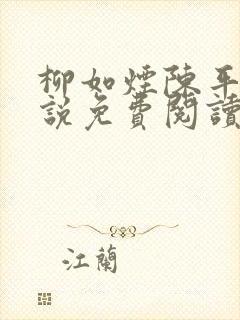 柳如煙陳平
說免費閱讀
江蘭